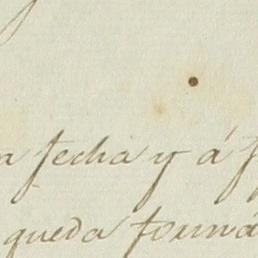 n fecha y á f
queda forma